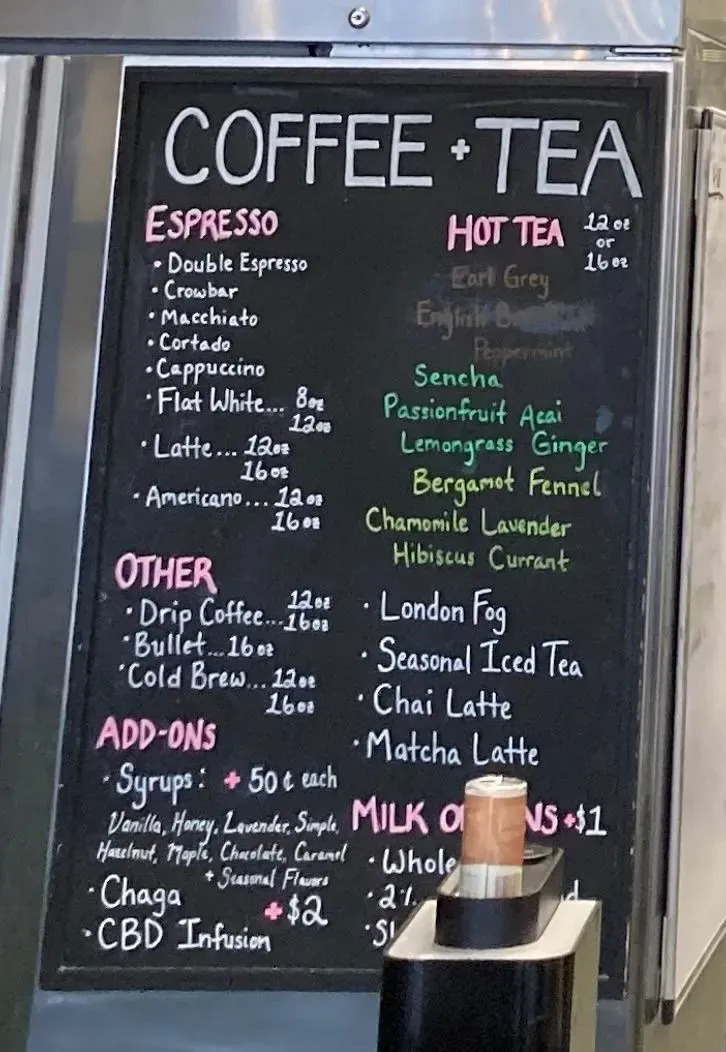 COFFEE + TEA
ESPRESSO
• Double Espresso
• Crowbar
• Macchiato
• Cortado
• Cappuccino
• Flat White... 8oz
12oz
• Latte... 12oz
16oz
• Americano... 12oz
16oz
OTHER
• Drip Coffee... 12oz
16oz
• Bullet... 16oz
• Cold Brew... 12oz
16oz
ADD-ONS
• Syrups: + 50¢ each
Vanilla, Honey, Lavender, Simple,
Hazelnut, Maple, Chocolate, Caramel
+ Seasonal Flavors
• Chaga
+ $2
• CBD Infusion
HOT TEA 12oz
or
16oz
Earl Grey
English
Peppermint
Sencha
Passionfruit Acai
Lemongrass Ginger
Bergamot Fennel
Chamomile Lavender
Hibiscus Currant
• London Fog
• Seasonal Iced Tea
• Chai Latte
• Matcha Latte
MILK +$1
• Whole
• 2%